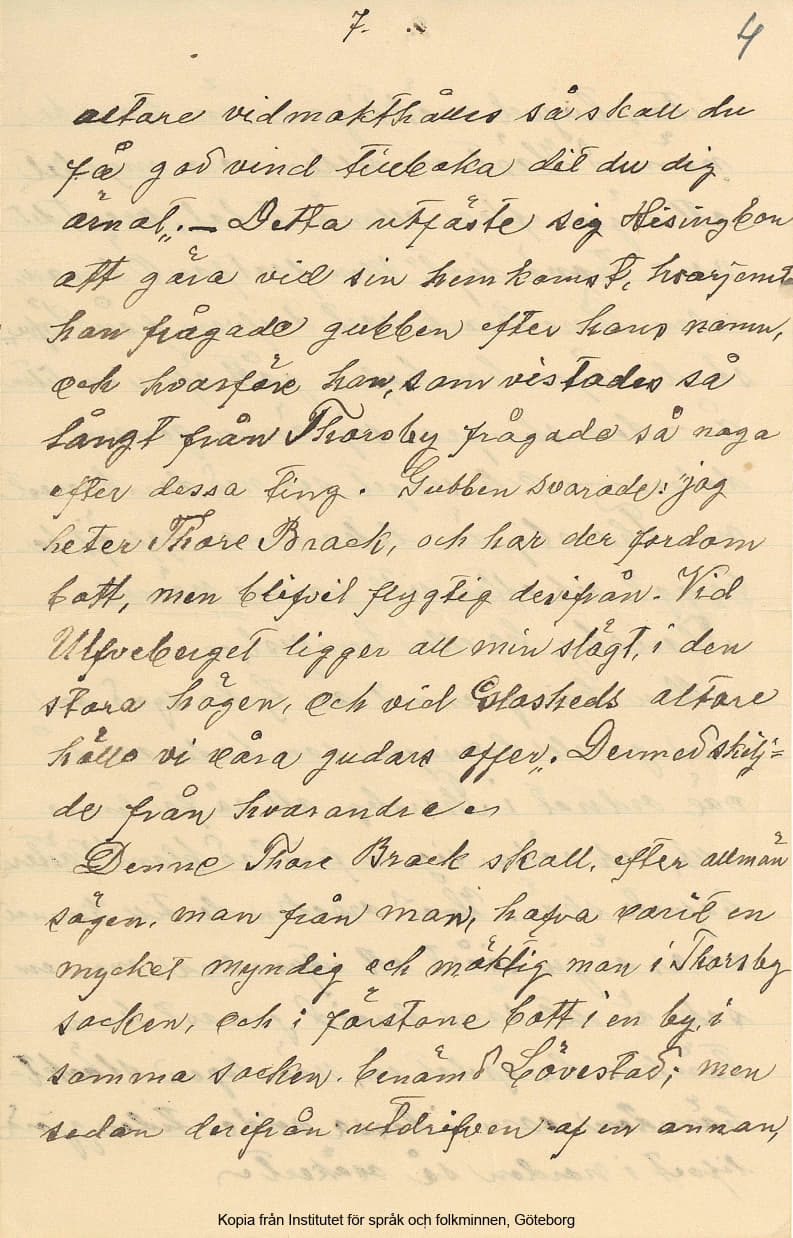 7.
4
altare vidmakthålles så skall du
få god vind tillbaka dit du dig
ärnat". — Detta utfäste sig Hisingbon
att göra vid sin hemkomst, hvarjemt
han frågade gubben efter hans namn,
och hvarföre han, som vistades så
långt från Thorsby frågade så noga
efter dessa ting. Gubben svarade: jag
heter Thore Brack, och har der fordom
bott, men blifvit flygtig derifrån. Vid
Ulfveberget ligger all min slägt, i den
stora högen, och vid Glosheds altare
hölle vi våra gudars offer". Dermed skilj=
de från hvarandra
Denne Thore Brack skall, efter allmän
sägen, man från man, hafva varit en
mycket myndig och mäktig man i Thorsby
socken, och i förstone bott i en by, i
samma socken. benämd Lövestad; men
sedan derifrån utdrifven af en annan,
Kopia från Institutet för språk och folkminnen, Göteborg